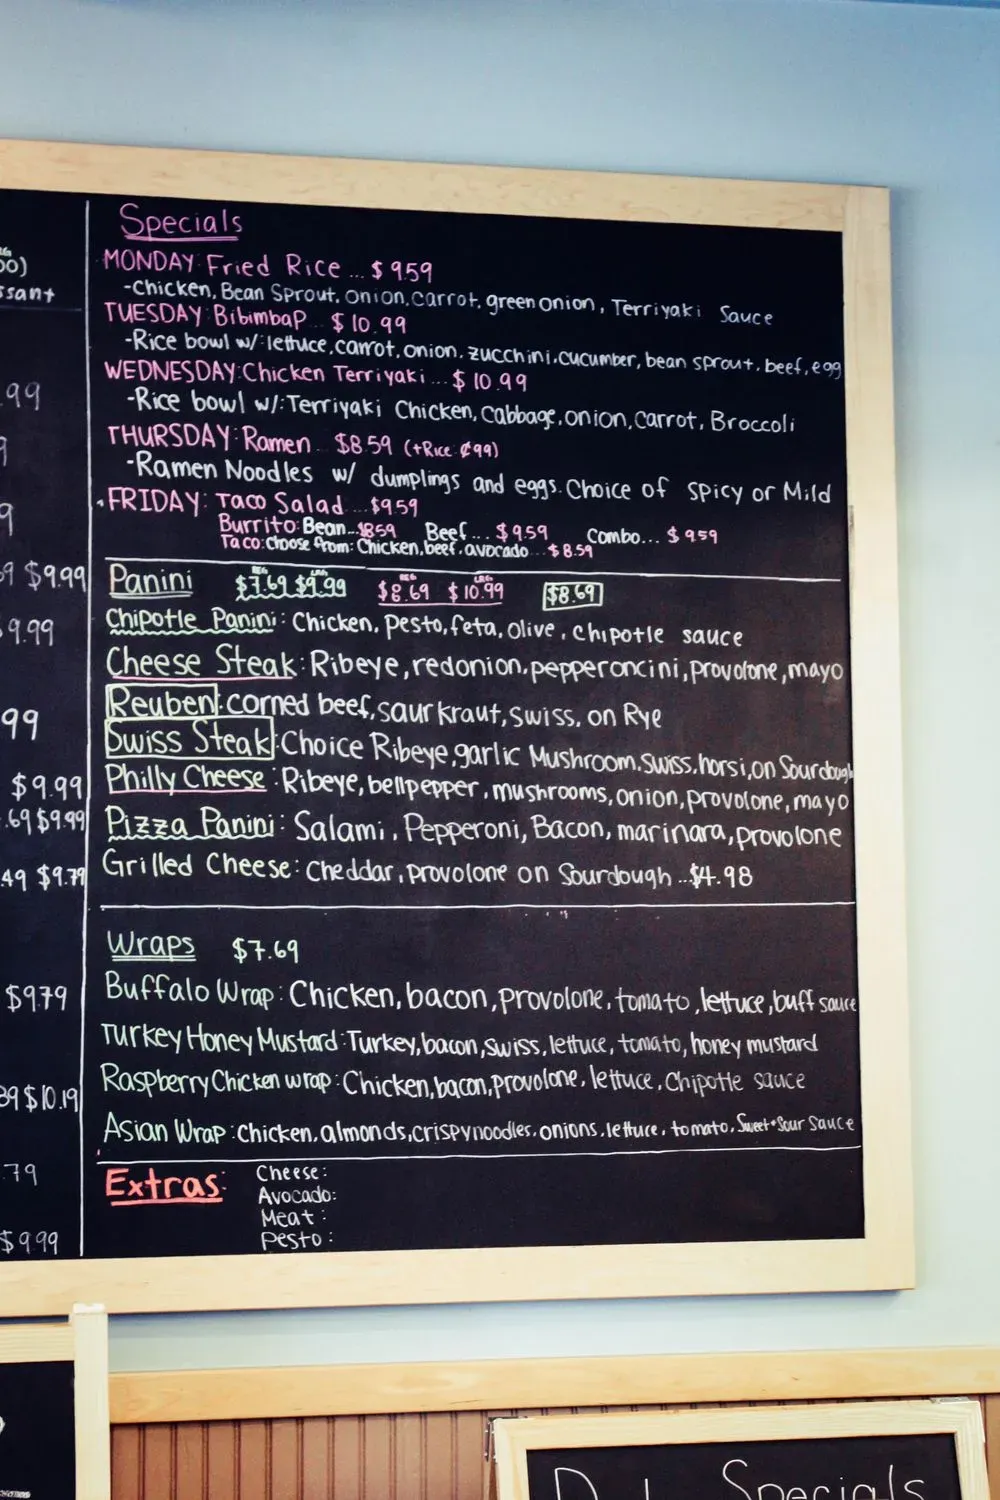 ssant
.99
9
9
9 $9.99
9.99
99
$9.99
.69 $9.99
.49 $9.79
$9.79
89 $10.19
.79
$9.99
Specials
MONDAY: Fried Rice ... $9.59
-Chicken, Bean Sprout, onion, carrot, green onion, Terriyaki Sauce
TUESDAY: Bibimbap... $10.99
-Rice bowl w/: lettuce, carrot, onion, zucchini, cucumber, bean sprout, beef, egg
WEDNESDAY: Chicken Terriyaki ... $10.99
-Rice bowl w/: Terriyaki Chicken, Cabbage, onion, carrot, Broccoli
THURSDAY: Ramen... $8.59 (+Rice: ¢99)
-Ramen Noodles w/ dumplings and eggs. Choice of spicy or Mild
FRIDAY: Taco Salad ... $9.59
Burrito: Bean...$8.59 Beef... $9.59 Combo... $9.59
Taco: Choose from: Chicken, beef, avocado...$8.59
Panini REG $7.69 LRG $9.99 REG $8.69 LRG $10.99 $8.69
Chipotle Panini: Chicken, Pesto, feta, olive, Chipotle sauce
Cheese Steak: Ribeye, redonion, pepperoncini, provolone, mayo
Reuben: corned beef, saurkraut, swiss, on Rye
Swiss Steak: Choice Ribeye, garlic Mushroom, swiss, horsi, on Sourdough
Philly Cheese: Ribeye, bellpepper, mushrooms, onion, provolone, mayo
Pizza Panini: Salami, Pepperoni, Bacon, marinara, provolone
Grilled Cheese: Cheddar, provolone on Sourdough ...$4.98
Wraps $7.69
Buffalo Wrap: Chicken, bacon, provolone, tomato, lettuce, buff sauce
Turkey Honey Mustard: Turkey, bacon, swiss, lettuce, tomato, honey mustard
Raspberry Chicken wrap: Chicken, bacon, provolone, lettuce, Chipotle sauce
Asian Wrap: chicken, almonds, crispy noodles, onions, lettuce, tomato, Sweet+Sour Sauce
Extras: Cheese:
Avocado:
Meat:
Pesto:
Specials